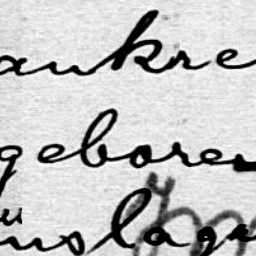 ankre
geboren
nslage